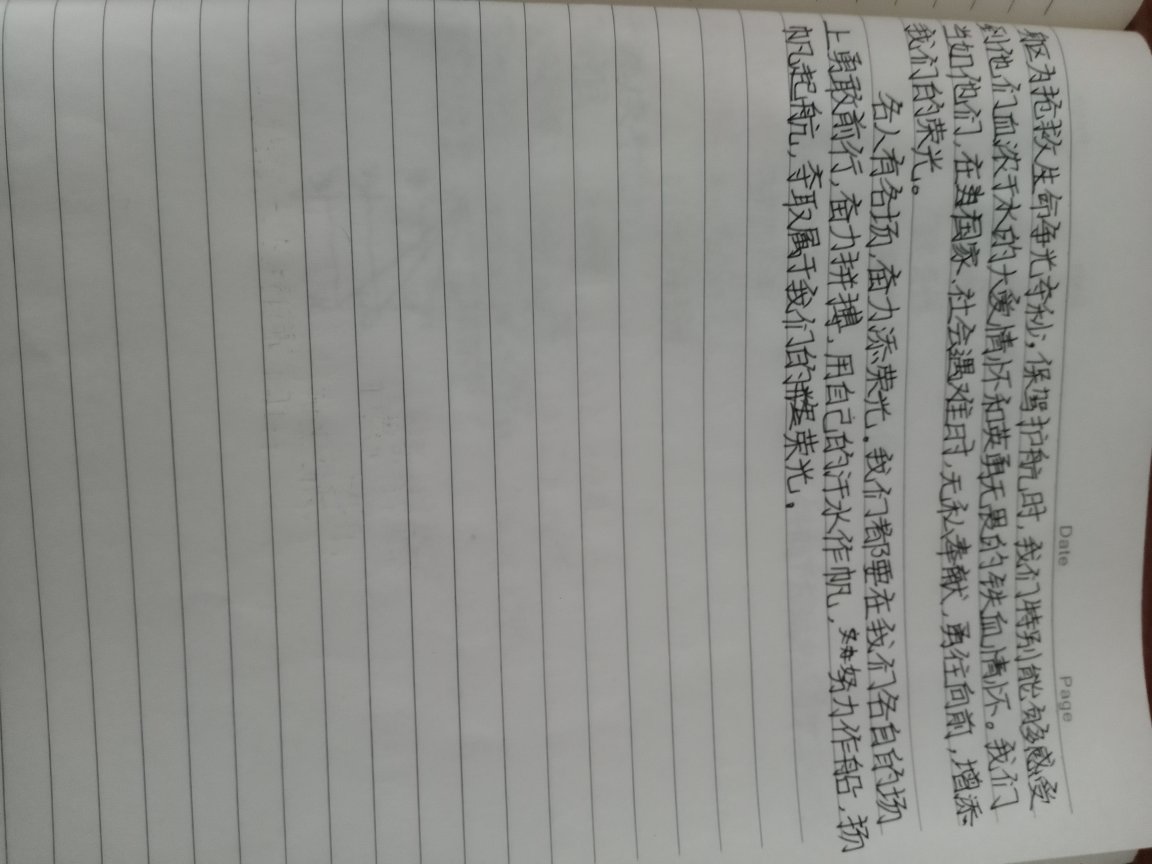 Date Page
躯为抢救生命争光夺秒,保驾护航时,我们特别能够感受
到他们血浓于水的大爱情怀和英勇无畏的铁血情怀。我们
当如他们,在国家、社会遇难时,无私奉献,勇往向前,增添
我们的荣光。
名人有各场,奋力添荣光。我们都要在我们各自的场
上勇敢前行,奋力拼搏,用自己的汗水作帆,努力作船,扬
帆起航,夺取属于我们的荣光。